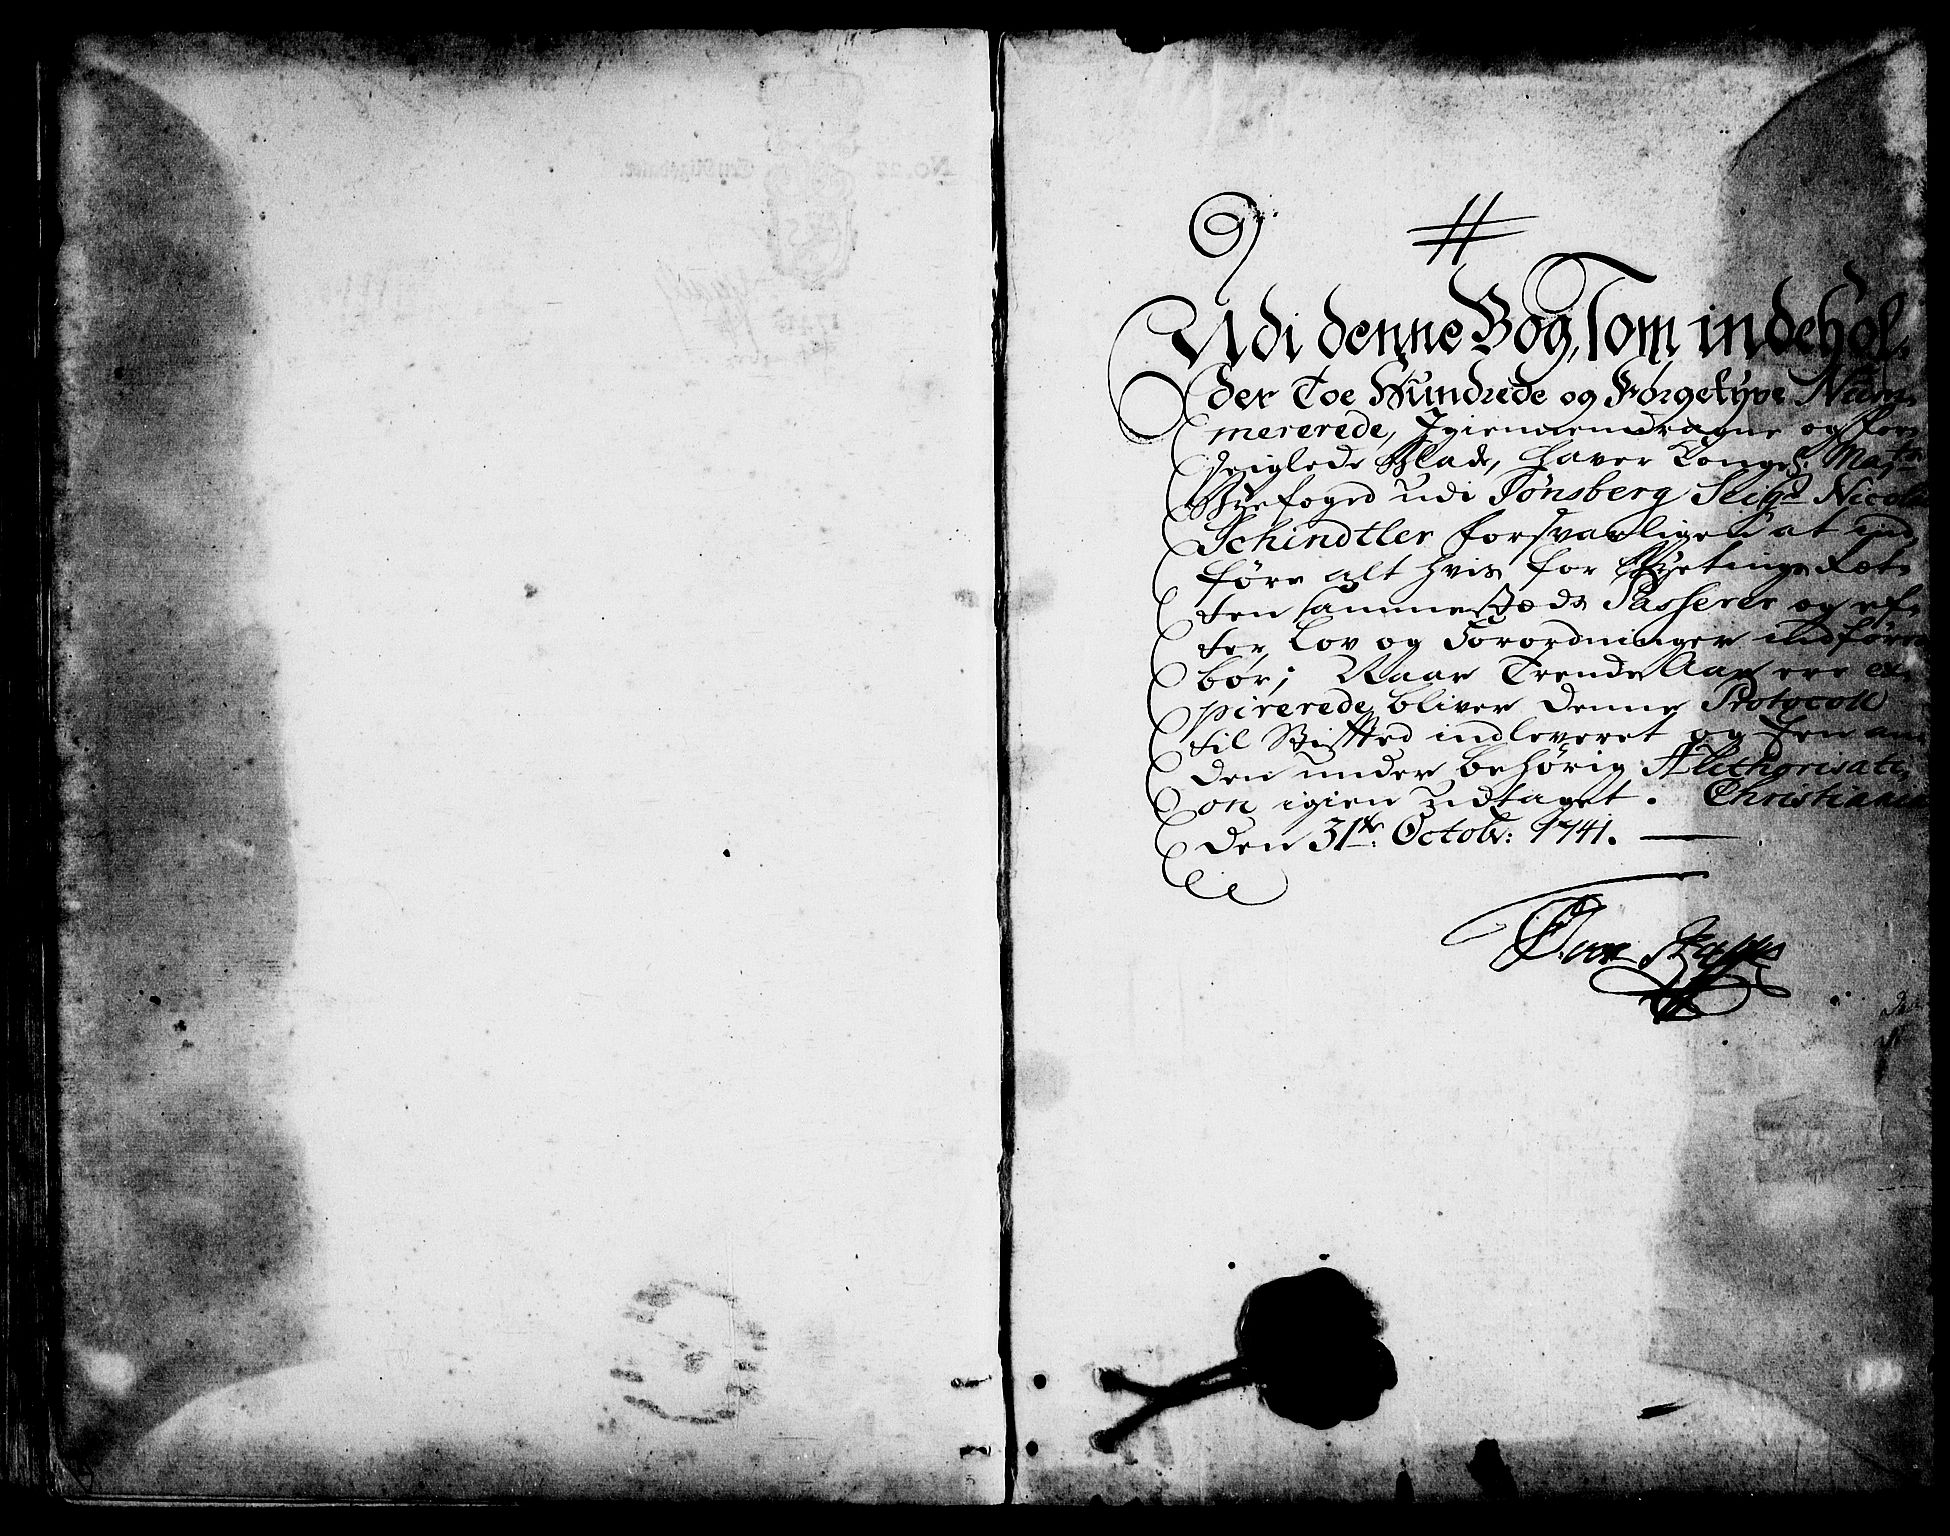 Udi denne Bog, som indehol,
der Toe Hundrede og Førgetyve Num,
mererede, Igiennemdragne og for,
seiglede Blade, haver Kongel: Majts
Byefoged udi Tønsberg Seigr Nicolai
Schindtler forsvarligen at ind,
føre alt hvis for Byetings Ret,
ten sammestæds Passerer og ef,
ter Lov og Forordninger indføres
bør; Naar Trende Aar ere ex,
pirerede, bliver denne Protocoll
til Stifted indleveret og Een an,
den under behørig Authorisati,
on igien udtaget. Christiania
den 31te: Octobr: 1741.